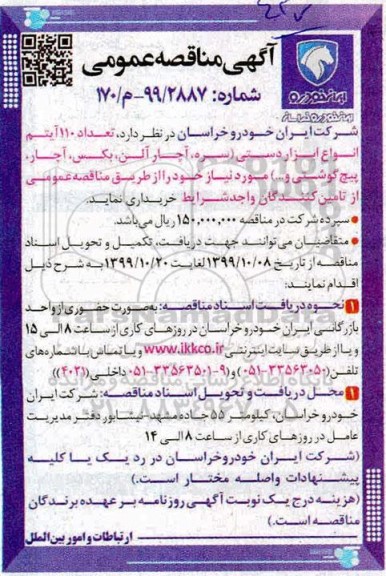 آگهی مناقصه عمومی
شماره: ۹۹/۲۸۸۷-م/۱۷۰
ایران خودرو خراسان
شرکت ایران خودرو خراسان در نظر دارد، تعداد ۱۱۰ آیتم
انواع ابزار دستی (سره، آچار آلن، بکس، آچار،
پیچ گوشتی و...) مورد نیاز خود را از طریق مناقصه عمومی
از تامین کنندگان واجد شرایط خریداری نماید.
• سپرده شرکت در مناقصه ۱۵۰,۰۰۰,۰۰۰ ریال می‌باشد.
• متقاضیان می‌توانند جهت دریافت، تکمیل و تحویل اسناد
مناقصه از تاریخ ۱۳۹۹/۱۰/۰۸ لغایت ۱۳۹۹/۱۰/۲۰ به شرح ذیل
اقدام نمایند:
۱ نحوه دریافت اسناد مناقصه: بصورت حضوری از واحد
بازرگانی ایران خودرو خراسان در روزهای کاری از ساعت ۸ الی ۱۵
و یا از طریق سایت اینترنتی www.ikkco.ir و یا تماس با شماره‌های
تلفن (۳۳۵۶۳۰۵۰-۰۵۱) و (۹-۳۳۵۶۳۵۰۱-۰۵۱ داخلی (۴۰۳۱))
۱ محل دریافت و تحویل اسناد مناقصه: شرکت ایران
خودرو خراسان، کیلومتر ۵۵ جاده مشهد-نیشابور دفتر مدیریت
عامل در روزهای کاری از ساعت ۸ الی ۱۴
(شرکت ایران خودرو خراسان در رد یک یا کلیه
پیشنهادات واصله مختار است.)
(هزینه درج یک نوبت آگهی روزنامه بر عهده برندگان
مناقصه است.)
ارتباطات و امور بین الملل